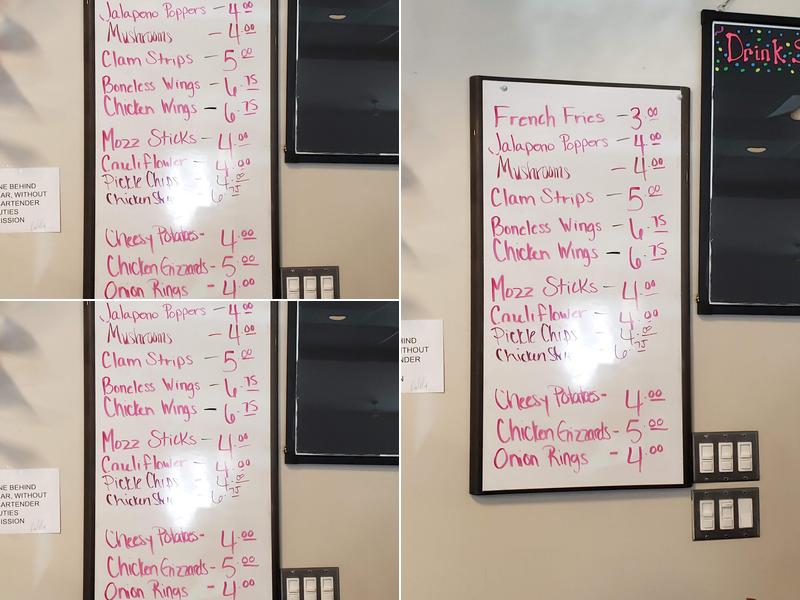 Jalapeno Poppers - 4.00
Mushrooms - 4.00
Clam Strips - 5.00
Boneless Wings - 6.75
Chicken Wings - 6.75
Mozz Sticks - 4.00
Cauliflower - 4.00
Pickle Chips 4.00
Chicken 6.75
Cheesy Potatoes - 4.00
Chicken Gizzards - 5.00
Onion Rings - 4.00
NE BEHIND
AR, WITHOUT
ARTENDER
UTIES
ISSION
Jalapeno Poppers - 4.00
Mushrooms - 4.00
Clam Strips - 5.00
Boneless Wings - 6.75
Chicken Wings - 6.75
Mozz Sticks - 4.00
Cauliflower - 4.00
Pickle Chips 4.00
Chicken 6.75
Cheesy Potatoes - 4.00
Chicken Gizzards - 5.00
Onion Rings - 4.00
NE BEHIND
AR, WITHOUT
ARTENDER
UTIES
ISSION
Drink S
French Fries - 3.00
Jalapeno Poppers - 4.00
Mushrooms - 4.00
Clam Strips - 5.00
Boneless Wings - 6.75
Chicken Wings - 6.75
Mozz Sticks - 4.00
Cauliflower - 4.00
Pickle Chips 4.00
Chicken 6.75
Cheesy Potatoes - 4.00
Chicken Gizzards - 5.00
Onion Rings - 4.00
HIND
ITHOUT
NDER
N